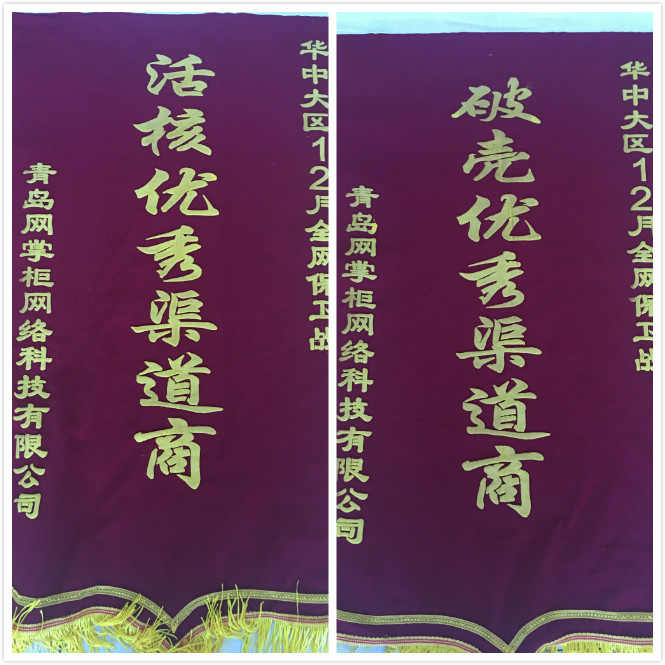 华中大区12月全网保卫战
活核优秀渠道商
青岛网掌柜网络科技有限公司
华中大区12月全网保卫战
破壳优秀渠道商
青岛网掌柜网络科技有限公司